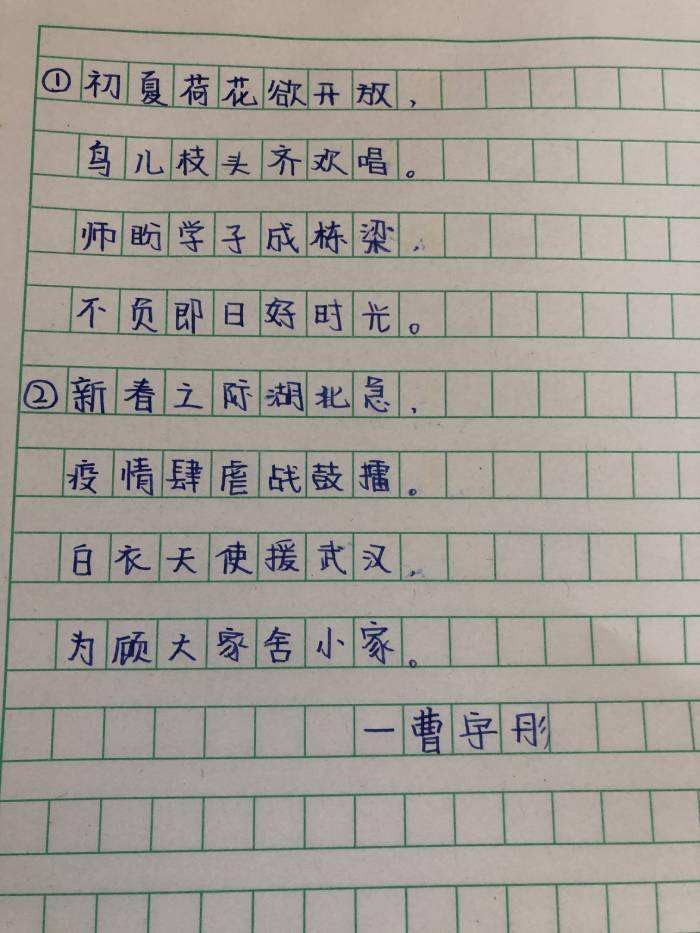 ①初夏荷花欲开放，
鸟儿枝头齐欢唱。
师盼学子成栋梁，
不负即日好时光。
②新春之际湖北急，
疫情肆虐战鼓擂。
白衣天使援武汉，
为顾大家舍小家。
—曹宇彤